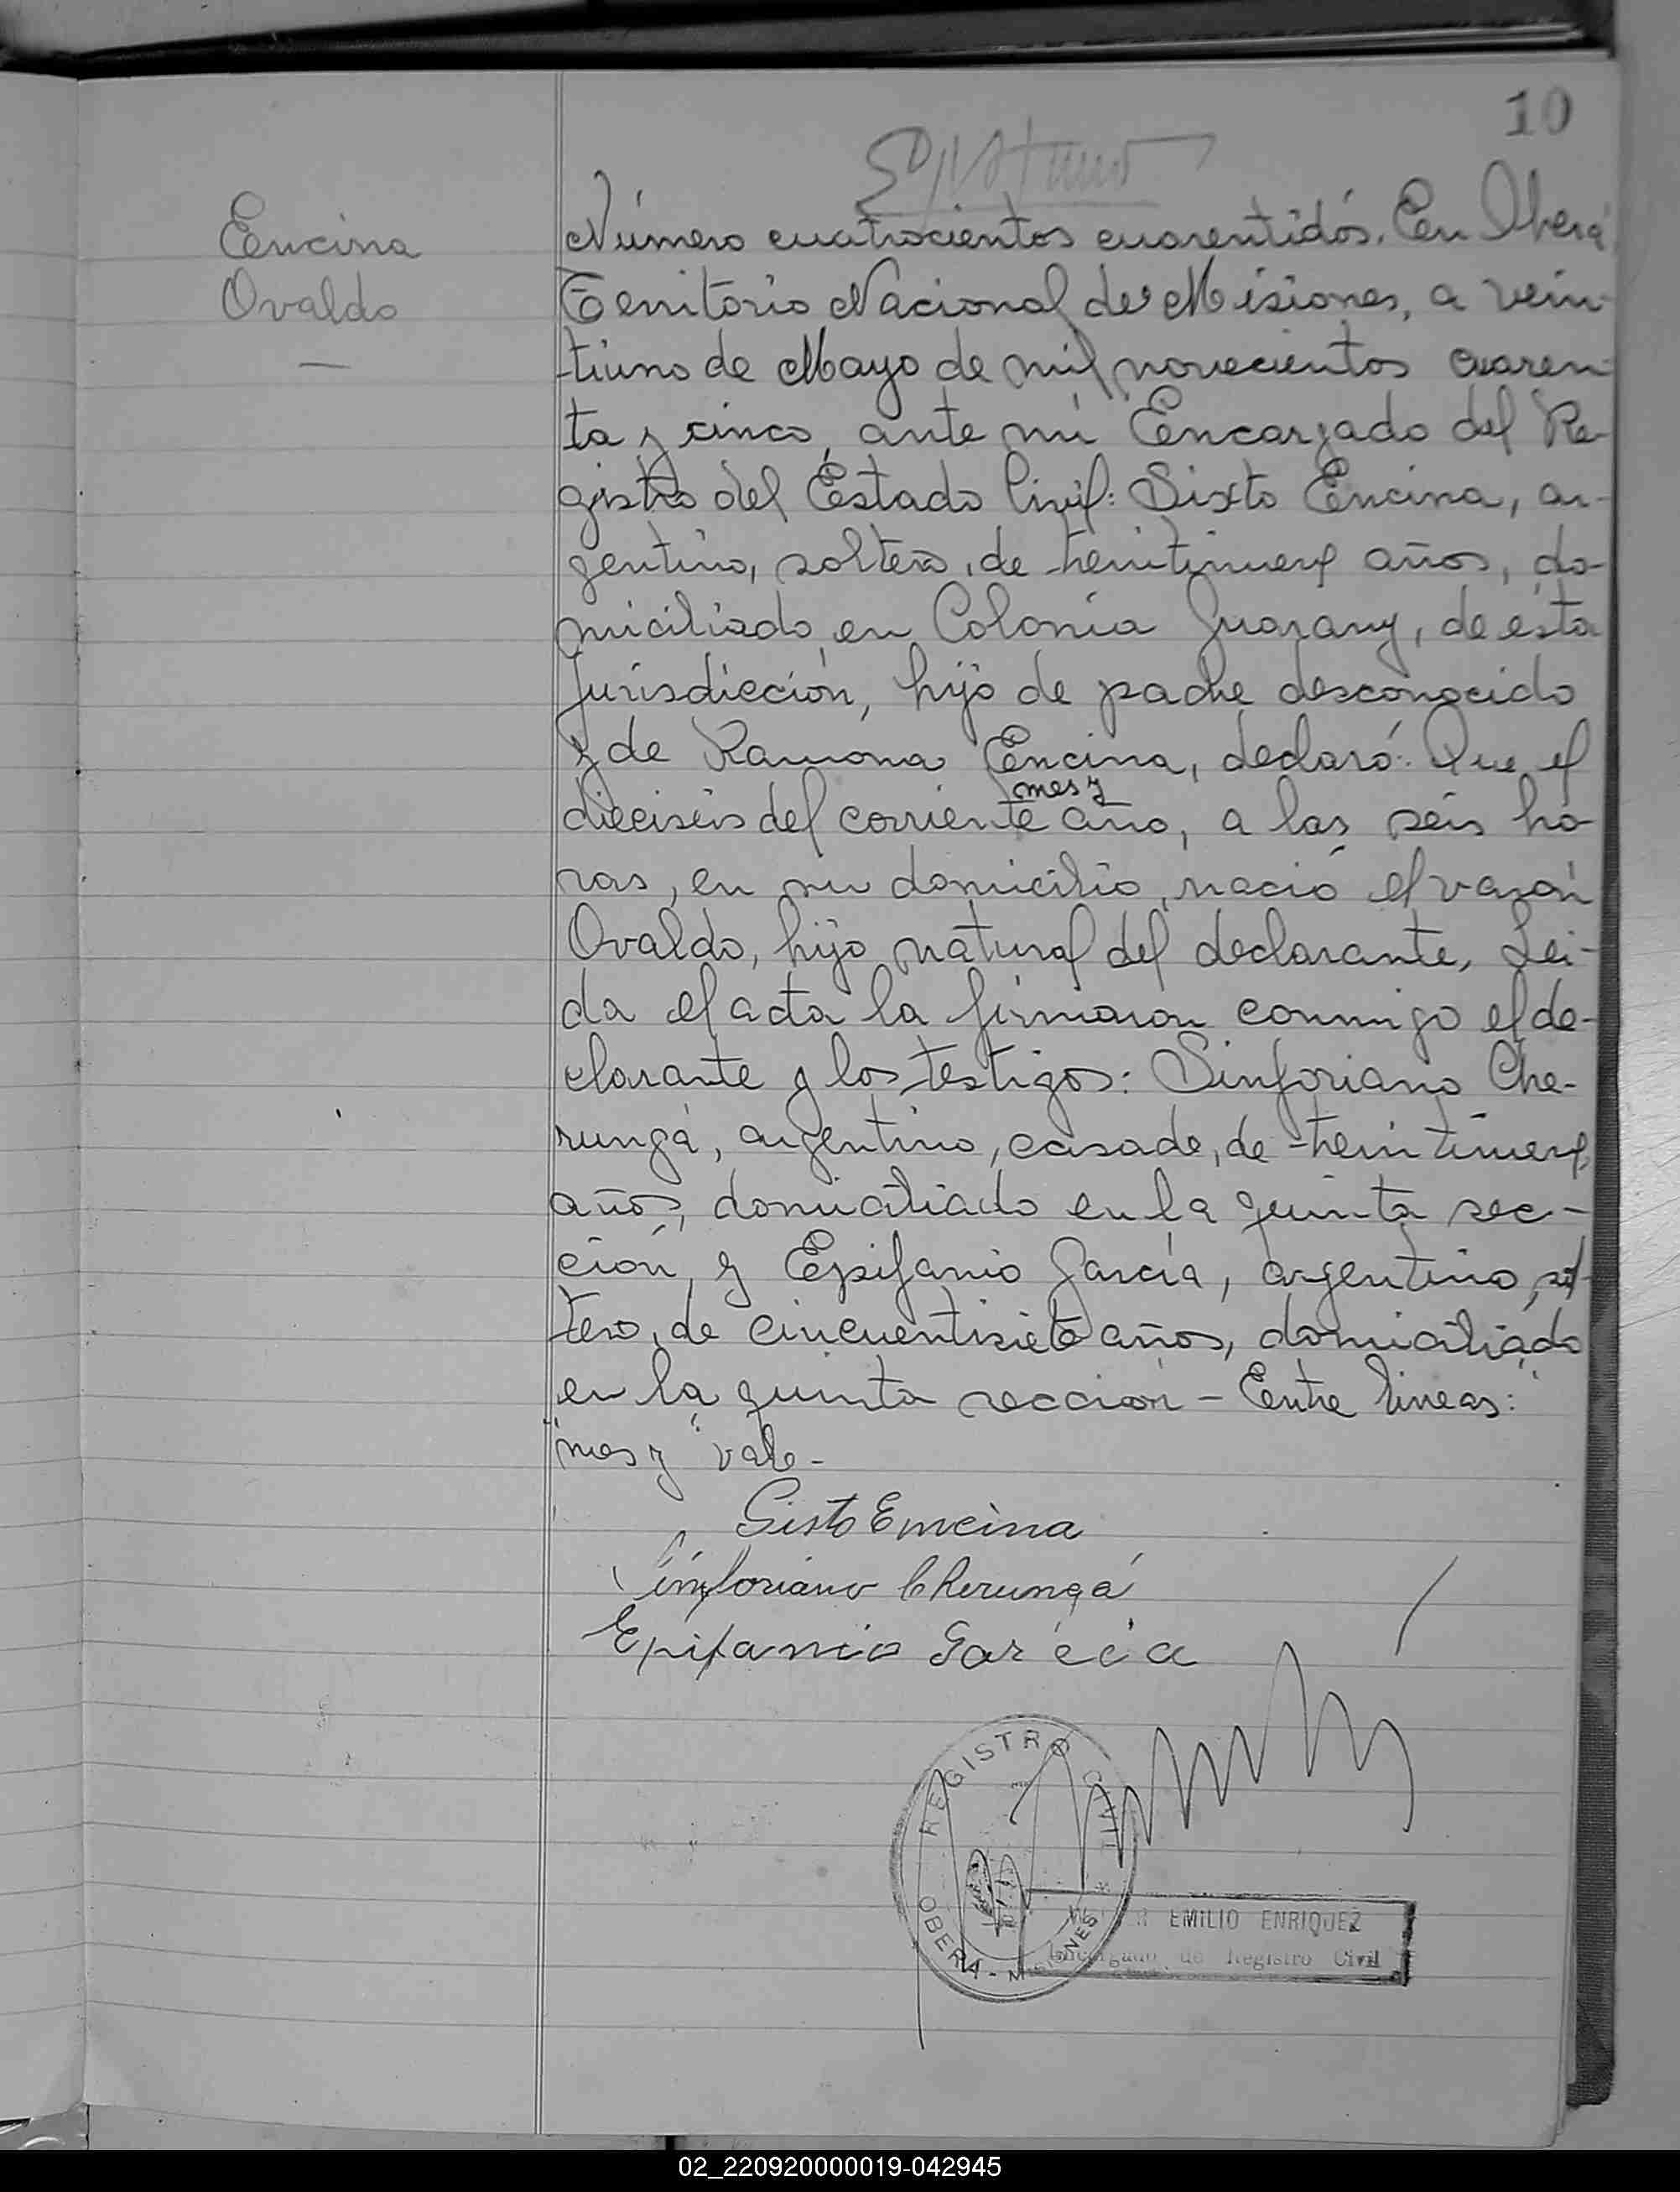 10
Encina
Ovaldo
Número cuatrocientos cuarentidós. En Oberá
Territorio Nacional de Misiones, a vein-
tiuno de Mayo de mil novecientos cuaren-
ta y cinco, ante mí Encargado del Re-
gistro del Estado Civil: Sixto Encina, ar-
gentino, soltero, de treintinueve años, do-
miciliado en Colonia Guarany, de ésta
Jurisdicción, hijo de padre desconocido
y de Ramona Encina, declaró: Que el
mes y
dieciséis del corriente año, a las séis ho-
ras, en su domicilio, nació el varón
Ovaldo, hijo natural del declarante, Lei-
da el acta la firmaron conmigo el de-
clarante y los testigos: Sinforiano Che-
rungá, argentino, casado, de treintinueve
años, domiciliado en la quinta sec-
ción, y Epifanio García, argentino, sol-
tero, de cincuentisiete años, domiciliado
en la quinta sección - Entre lineas:
"mes y" vale -
Sisto Emcina
Sinforiano Cherungá
Epifanio Garcia
REGISTRO CIVIL
OBERA - MISIONES
EMILIO ENRIQUEZ
Encargado de Registro Civil
02_220920000019-042945